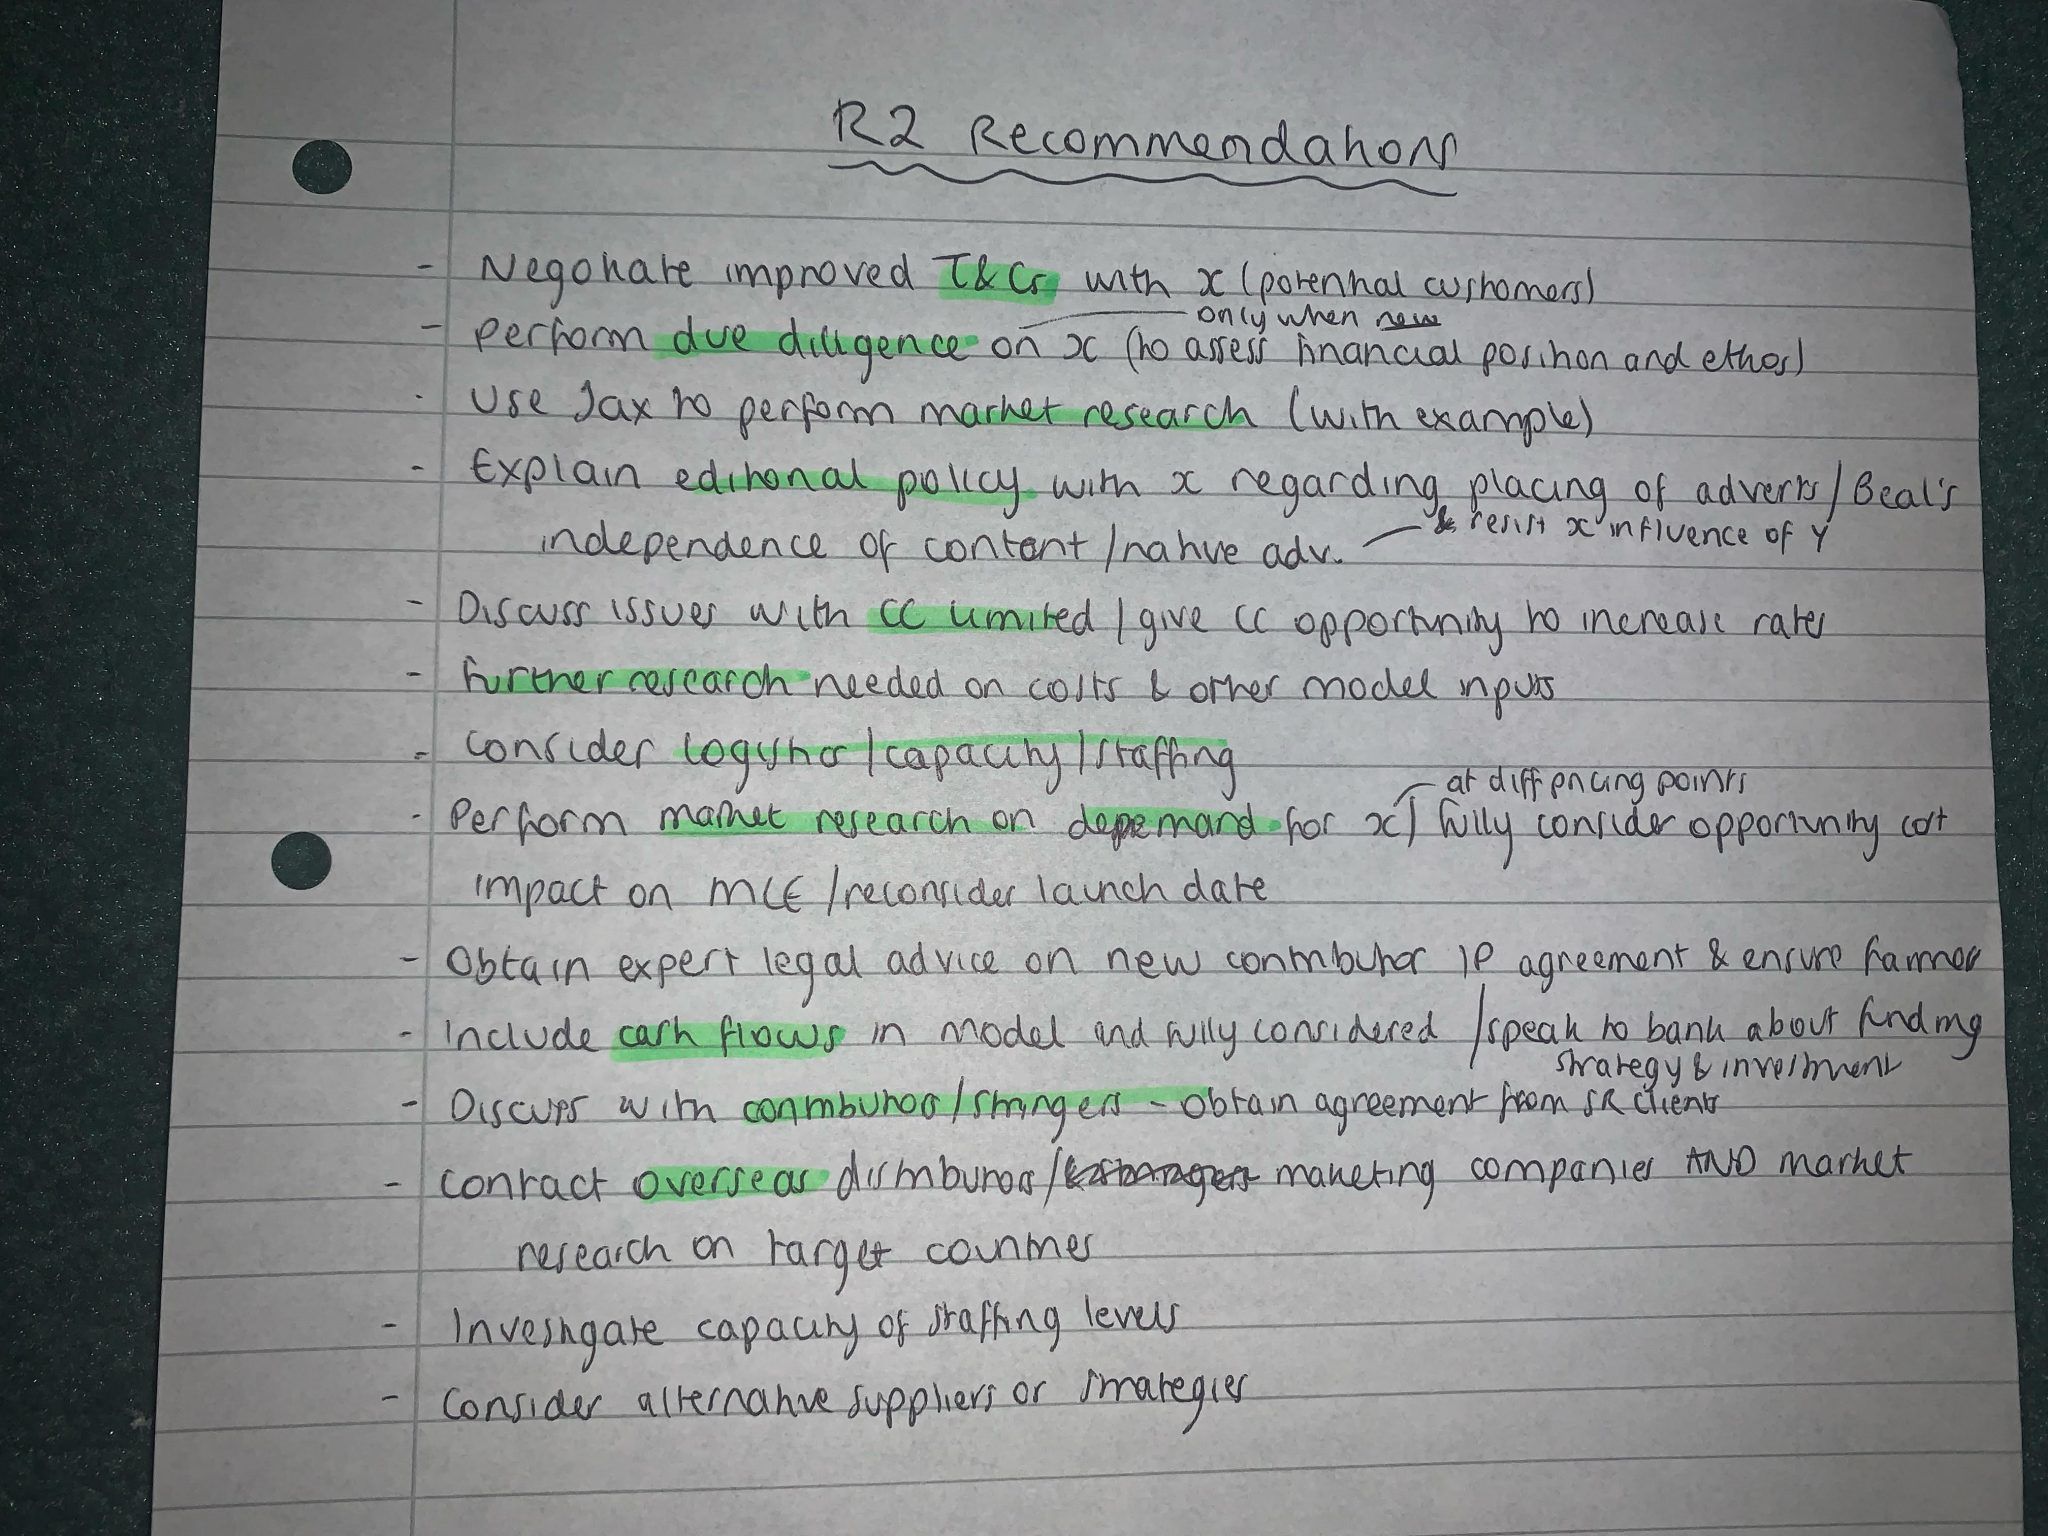 R2 Recommendations
- Negotiate improved T&Cs with x (potential customers)
only when new
- Perform due diligence on x (to assess financial position and ethos)
- Use Jax to perform market research (with example)
- Explain editorial policy with x regarding placing of adverts/Beal's
& resist x influence of Y
independence of content/native adv.
- Discuss issues with CC Limited/give CC opportunity to increase rates
- Further research needed on costs & other model inputs
- Consider logistics/capacity/staffing
at diff pricing points
- Perform market research on demand for x/fully consider opportunity cost
impact on MCE/reconsider launch date
- Obtain expert legal advice on new contributor IP agreement & ensure
- Include cash flows in model and fully considered /speak to bank about funding
strategy & investment
- Discuss with contributors/stringers - obtain agreement from SR clients
- Contact overseas distributors/ marketing companies AND market
research on target countries
- Investigate capacity of staffing levels
- Consider alternative suppliers or strategies